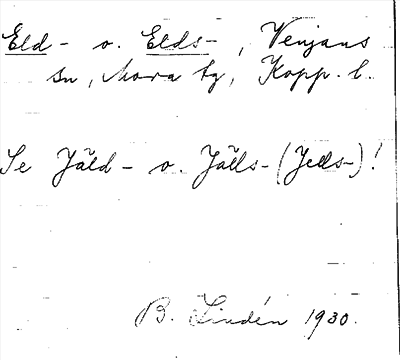 Eld- o. Elds-, Venjans
sn, Mora tg, Kopp. l.
Se Jäld- o. Jälls- (Jells-)!
B. Lindén 1930.